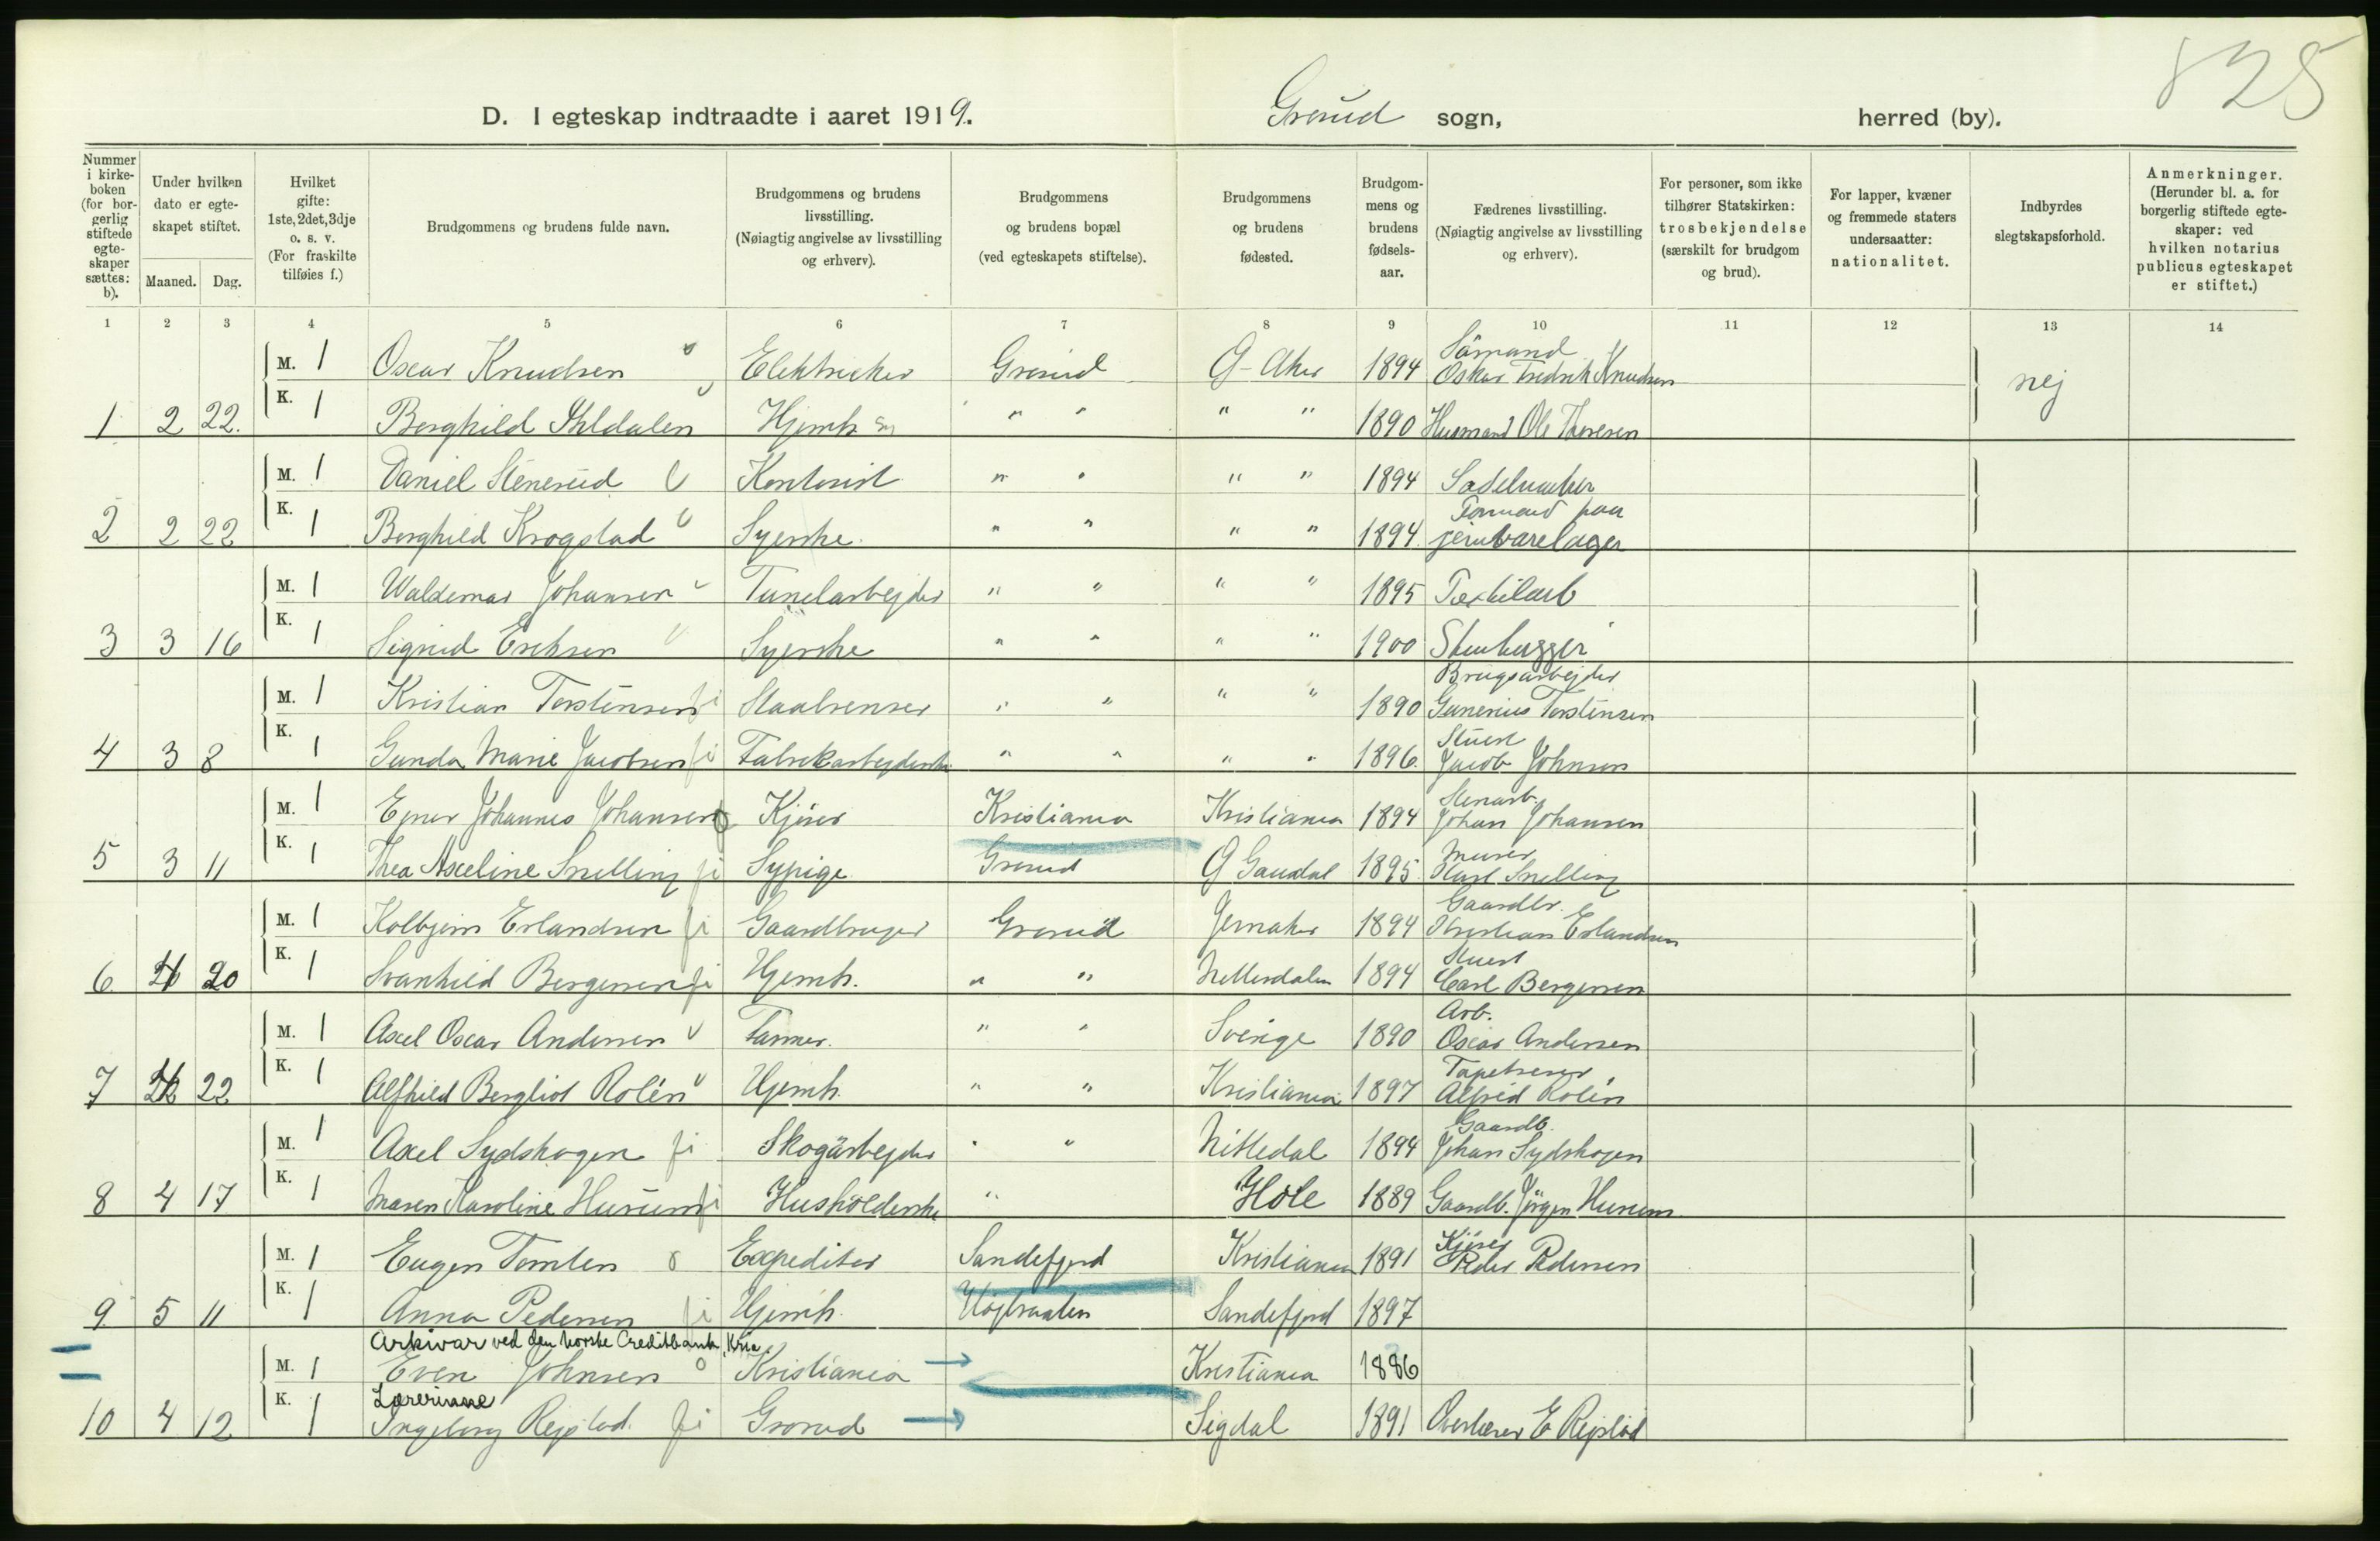 825
D. I egteskap indtraadte i aaret 1919. Grorud sogn, herred (by).
Nummer i kirke-boken (for bor-gerlig stiftede egte-skaper sættes: b).
Under hvilken dato er egte-skapet stiftet.
Maaned. Dag.
Hvilket gifte: 1ste, 2det, 3dje o. s. v. (For fraskilte tilføies f.)
Brudgommens og brudens fulde navn.
Brudgommens og brudens livsstilling. (Nøiagtig angivelse av livsstilling og erhverv).
Brudgommens og brudens bopæl (ved egteskapets stiftelse).
Brudgommens og brudens fødested.
Brudgom-mens og brudens fødsels-aar.
Fædrenes livsstilling. (Nøiagtig angivelse av livsstilling og erhverv).
For personer, som ikke tilhører Statskirken: trosbekjendelse (særskilt for brudgom og brud).
For lapper, kvæner og fremmede staters undersaatter: nationalitet.
Indbyrdes slegtskapsforhold.
Anmerkninger. (Herunder bl. a. for borgerlig stiftede egte-skaper: ved hvilken notarius publicus egteskapet er stiftet.)
1 2 3 4 5 6 7 8 9 10 11 12 13 14
Sömand
M. 1 Oscar Knudsen Elektriker Grorud Ø-Aker 1894 Oskar Fredrik Knudsen nej
1 2 22. K. 1 Borghild " " " " 1890 Husmand Ole Thoresen
M. 1 Daniel Stenerud Kontorist " " " " 1894 Sadelmaker
Formand paa
2 2 22 K. 1 Borghild Krogstad Syerske. " " " " 1894 jernvarelager
M. 1 Waldemar Johansen Tunelarbejder " " " " 1895 Textilarb
3 3 16 K. 1 Sigrid Eriksen Syerske " " " " 1900 Stenhugger
Brugsarbejder
M. 1 Kristian Torstensen Staalrenser " " " " 1890 Gunerius Torstensen
4 3 8 K. 1 Gunda Marie Jacobsen Fabrikarbejderske " " " " 1896. Jacob Johnsen
Stenarb.
M. 1 Ejnar Johannes Johansen Kjører Kristiania Kristiania 1894 Johan Johansen
Murer
5 3 11 K. 1 Thea Axeline Snelling Sypige Grorud Ø Gausdal 1895. Karl Snelling
Gaardbr.
M. 1 Kolbjørn Erlandsen Gaardbruger Grorud Jevnaker 1894 Kristian Erlandsen
6 4 20 K. 1 Svanhild Bergersen Hjemh. " " Nittedalen 1894 Carl Bergersen
Arb.
M. 1 Axel Oscar Andersen Farmer. " " Sverige 1890 Oscar Andersen
Tapetserer
7 22 K. 1 Alfhild Bergliot Rolén Hjemh. " " Kristiania 1897 Alfred Rolén
Gaardb.
M. 1 Axel Sydskogen Skogarbejder " " Nittedal 1894 Johan Sydskogen
8 4 17 K. 1 Maren Karoline Husum Husholderske " Hole 1889 Gaardb. Jörgen Husum
Kjører
M. 1 Eugen Tomten Expeditør Sandefjord Kristiania 1891 Peder Pedersen
9. 5 11 K. 1 Anna Pedersen Hjemh. Højbraaten Sandefjord 1897
Arkivar ved den Norske Creditbank, Kria
M. 1 Even Johnsen Kristiania Kristiania 1886
Lærerinne
10 4 12 K. 1 Ingeborg Rejstad. Grorud Sigdal 1891 Overlærer E Rejstad